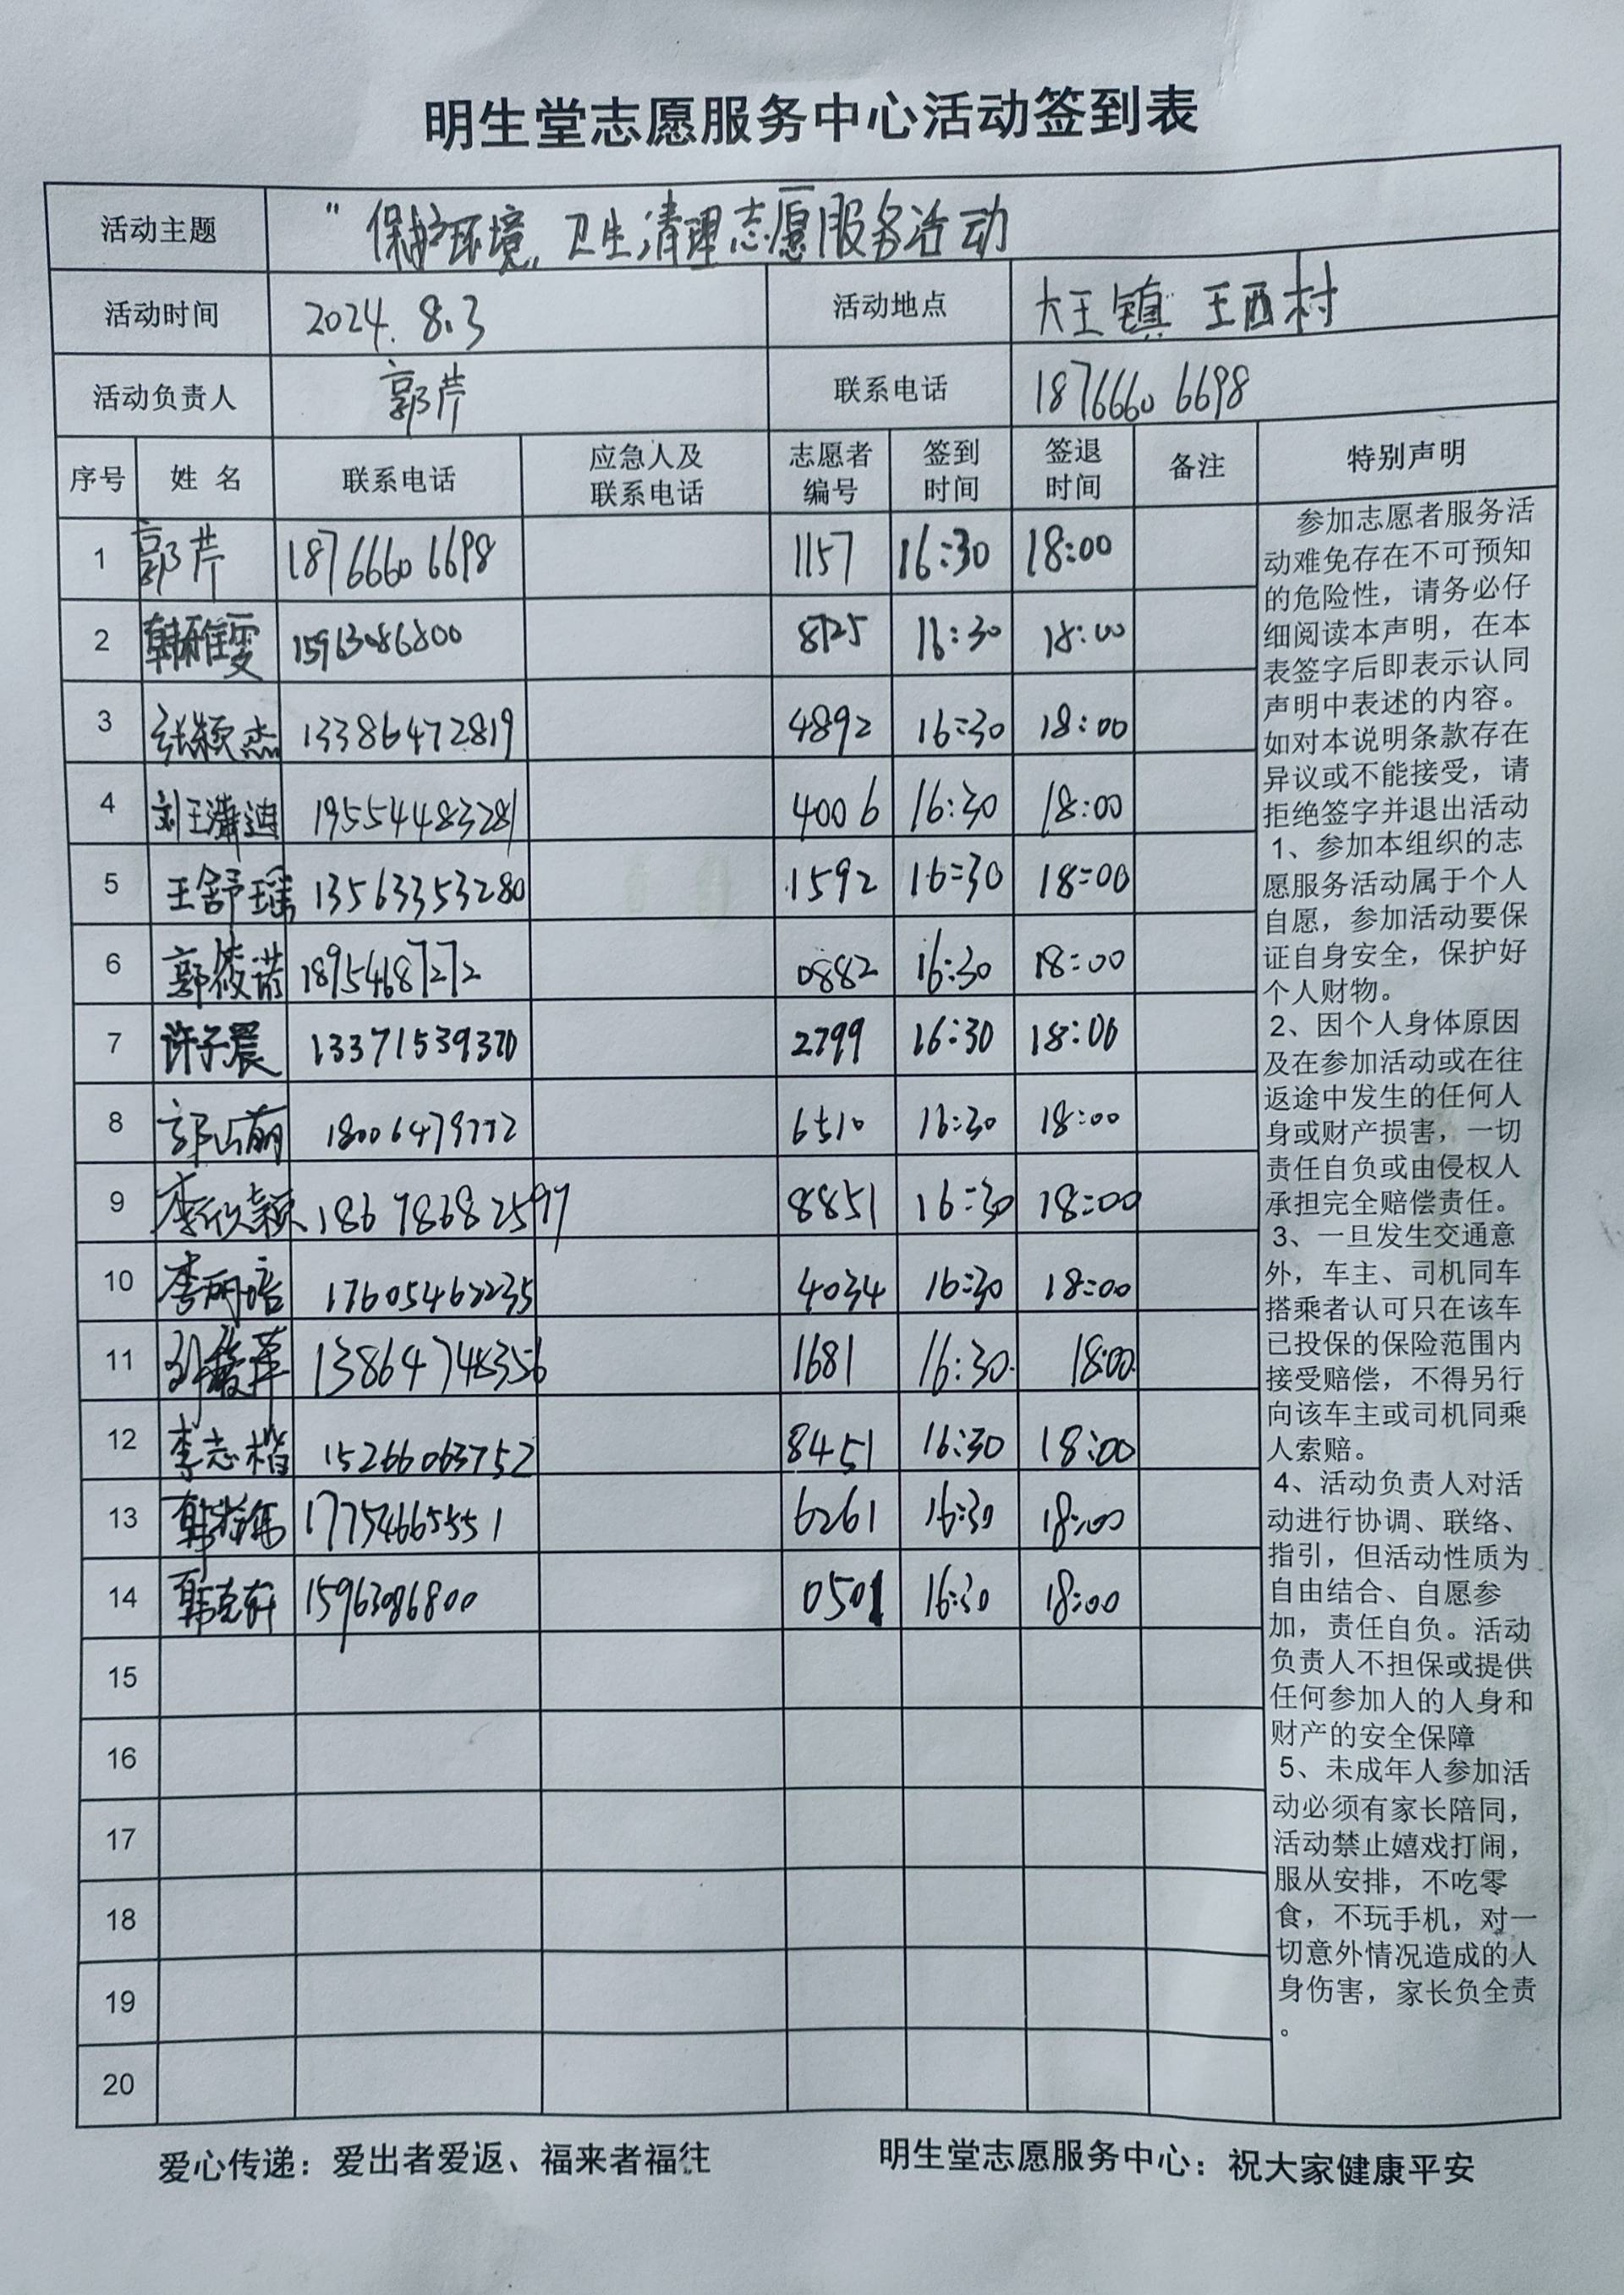 明生堂志愿服务中心活动签到表
活动主题 "保护环境,卫生清理志愿服务活动
活动时间 2024.8.3 活动地点 大王镇 王西村
活动负责人 郭芹 联系电话 18766606698
序号 姓名 联系电话 应急人及联系电话 志愿者编号 签到时间 签退时间 备注 特别声明
1 郭芹 18766606698 1157 16:30 18:00
2 韩雅雯 15963086800 8725 16:30 18:00
3 张颖杰 13386472819 4892 16:30 18:00
4 刘王潇迪 19554483281 4006 16:30 18:00
5 王舒瑶 13563353280 1592 16:30 18:00
6 郭筱诺 18954687272 0882 16:30 18:00
7 许子晨 13371539370 2799 16:30 18:00
8 郭 18006479772 6510 16:30 18:00
9 李欣颖 18678682597 8851 16:30 18:00
10 李雨培 17605462235 4034 16:30 18:00
11 13864748356 1681 16:30 18:00
12 李志楷 15266063752 8451 16:30 18:00
13 17754665551 6261 16:30 18:00
14 韩克轩 15963086800 0501 16:30 18:00
15
16
17
18
19
20
参加志愿者服务活
动难免存在不可预知
的危险性，请务必仔
细阅读本声明，在本
表签字后即表示认同
声明中表述的内容。
如对本说明条款存在
异议或不能接受，请
拒绝签字并退出活动
1、参加本组织的志
愿服务活动属于个人
自愿，参加活动要保
证自身安全，保护好
个人财物。
2、因个人身体原因
及在参加活动或在往
返途中发生的任何人
身或财产损害，一切
责任自负或由侵权人
承担完全赔偿责任。
3、一旦发生交通意
外，车主、司机同车
搭乘者认可只在该车
已投保的保险范围内
接受赔偿，不得另行
向该车主或司机同乘
人索赔。
4、活动负责人对活
动进行协调、联络、
指引，但活动性质为
自由结合、自愿参
加，责任自负。活动
负责人不担保或提供
任何参加人的人身和
财产的安全保障
5、未成年人参加活
动必须有家长陪同，
活动禁止嬉戏打闹，
服从安排，不吃零
食，不玩手机，对一
切意外情况造成的人
身伤害，家长负全责
。
爱心传递：爱出者爱返、福来者福往 明生堂志愿服务中心：祝大家健康平安